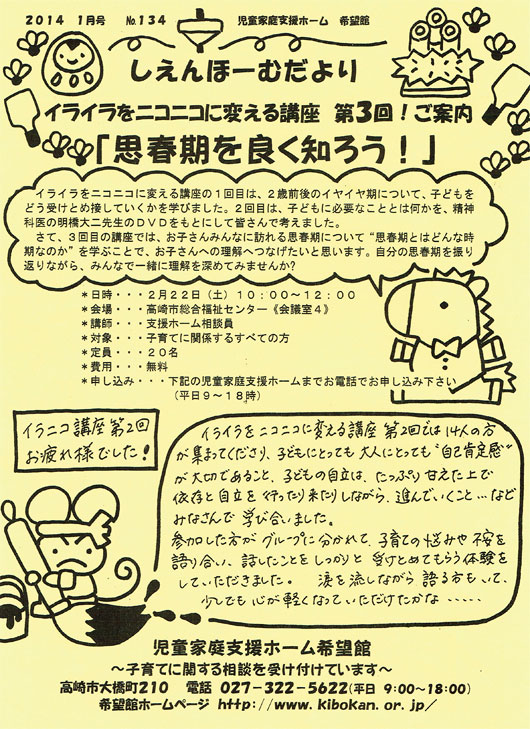 2014 1月号 No.134 児童家庭支援ホーム 希望館
しえんほーむだより
イライラをニコニコに変える講座 第3回！ご案内
「思春期を良く知ろう！」
イライラをニコニコに変える講座の1回目は、2歳前後のイヤイヤ期について、子どもを
どう受けとめ接していくかを学びました。2回目は、子どもに必要なこととは何かを、精神
科医の明橋大二先生のDVDをもとにして皆さんで考えました。
さて、3回目の講座では、お子さんみんなに訪れる思春期について“思春期とはどんな時
期なのか”を学ぶことで、お子さんへの理解へつなげたいと思います。自分の思春期を振
り返りながら、みんなで一緒に理解を深めてみませんか？
＊日時・・・2月22日（土）10：00～12：00
＊会場・・・高崎市総合福祉センター《会議室4》
＊講師・・・支援ホーム相談員
＊対象・・・子育てに関係するすべての方
＊定員・・・20名
＊費用・・・無料
＊申し込み・・・下記の児童家庭支援ホームまでお電話でお申し込み下さい
（平日9～18時）
イラニコ講座第2回
お疲れ様でした！
イライラをニコニコに変える講座 第2回では14人の方
が集まってくださり、子どもにとっても大人にとっても“自己肯定感”
が大切であること、子どもの自立は、たっぷり甘えた上で
依存と自立を行ったり来たりしながら、進んでいくこと…など
みなさんで学び合いました。
参加した方がグループに分かれて、子育ての悩みや不安を
語り合い、話したことをしっかりと受けとめてもらう体験を
していただきました。 涙を流しながら語る方もいて、
少しでも心が軽くなっていただけたかな・・・・・
児童家庭支援ホーム希望館
～子育てに関する相談を受け付けています～
高崎市大橋町210 電話 027-322-5622(平日 9:00～18:00)
希望館ホームページ http://www.kibokan.or.jp/